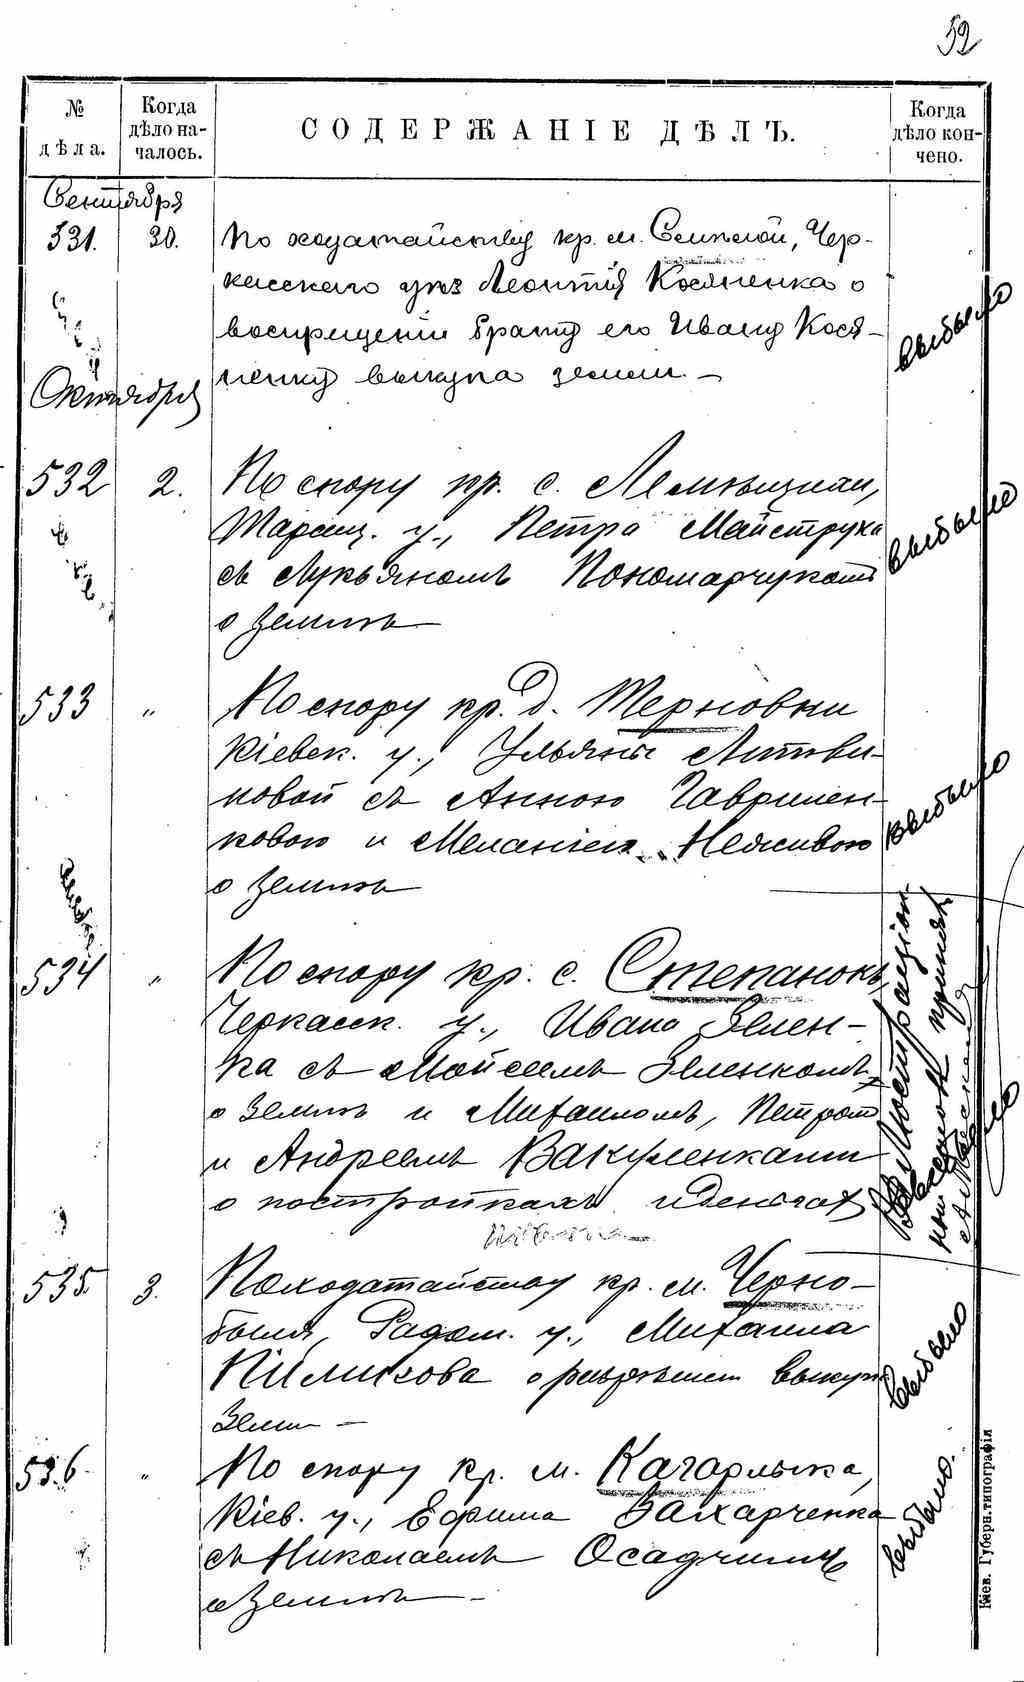 52
№ дѣла.
Когда дѣло началось.
СОДЕРЖАНІЕ ДѢЛЪ.
Когда дѣло кончено.
Сентября
531. 30. По ходатайству кр. м. Смѣлой, Чер-
касскаго уѣз Леонтія Косяненка о
воспрещеніи брату его Ивану Кося-
ненку выкупа земли. —
выбыло
Октября
532 2. По спору кр. с.
Таращ. у., Петра Майструка
съ Лукьяномъ Пономарчукомъ
о землѣ —
выбыло
533 " По спору кр. д. Терновки
Кіевск. у., Ульяны Литви-
новой съ Анною Гаврилен-
ковою и Меланіею Неживою
о землѣ —
выбыло
534 " По спору кр. с. Степанокъ,
Черкасск. у., Ивана Зелен-
ка съ Мойсеемъ Зеленкомъ
о землѣ и Михаиломъ, Петромъ
и Андреемъ Вакуленками
о постройкахъ и деньгах
535. 3. По ходатайству кр. м. Черно-
быля, Радом. у., Михаила
о разрѣшен. выкупа
земли —
выбыло
536. " По спору кр. м. Кагарлыка,
Кіев. у., Ефима Захарченка
съ Николаемъ Осадчимъ
о землѣ —
выбыло.
Кіев. Губерн. типографія